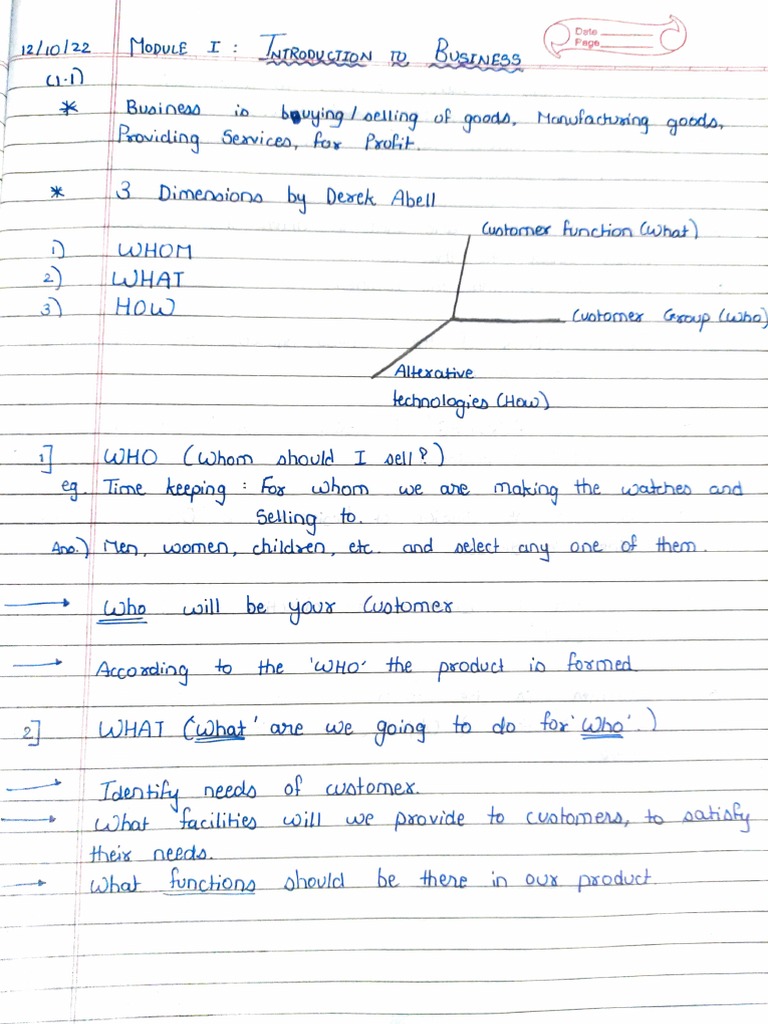 Date
Page
12/10/22 MODULE I : INTRODUCTION TO BUSINESS
(1.1)
* Business is buying/selling of goods, Manufacturing goods,
Providing Services, for Profit.
* 3 Dimensions by Derek Abell
Customer function (What)
1) WHOM
2) WHAT
3) HOW
Customer Group (Who)
Alterative
technologies (How)
1] WHO (Whom should I sell?)
eg. Time keeping : For whom we are making the watches and
Selling to.
Ans.) Men, women, children, etc. and select any one of them.
→ Who will be your Customer
→ According to the 'WHO' the product is formed
2] WHAT ('What' are we going to do for 'Who'.)
→ Identify needs of customer.
→ What facilities will we provide to customers, to satisfy
their needs.
→ What functions should be there in our product